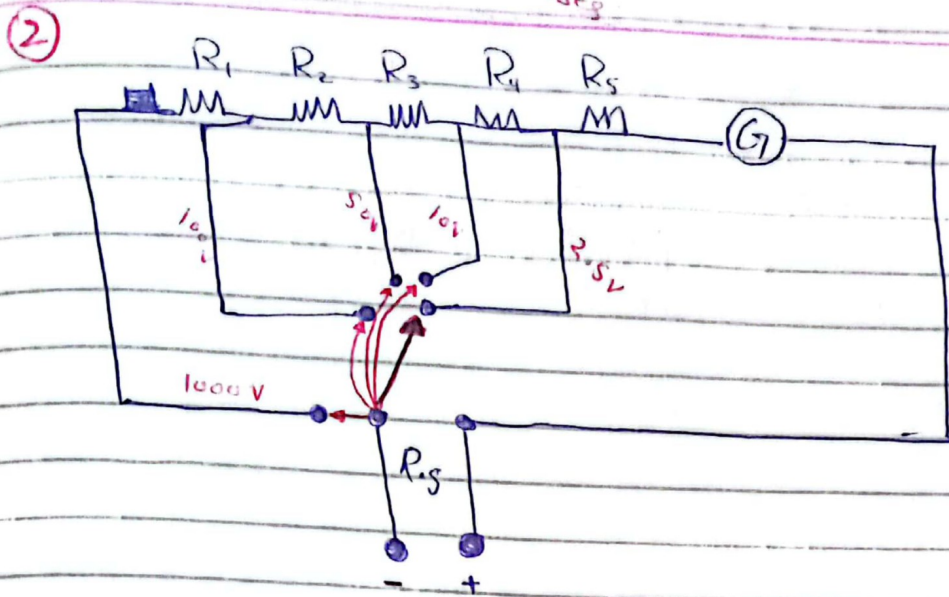 2
R₁ R₂ R₃ R₄ R₅
G
50v 10v
2.5v
1000 V
- +